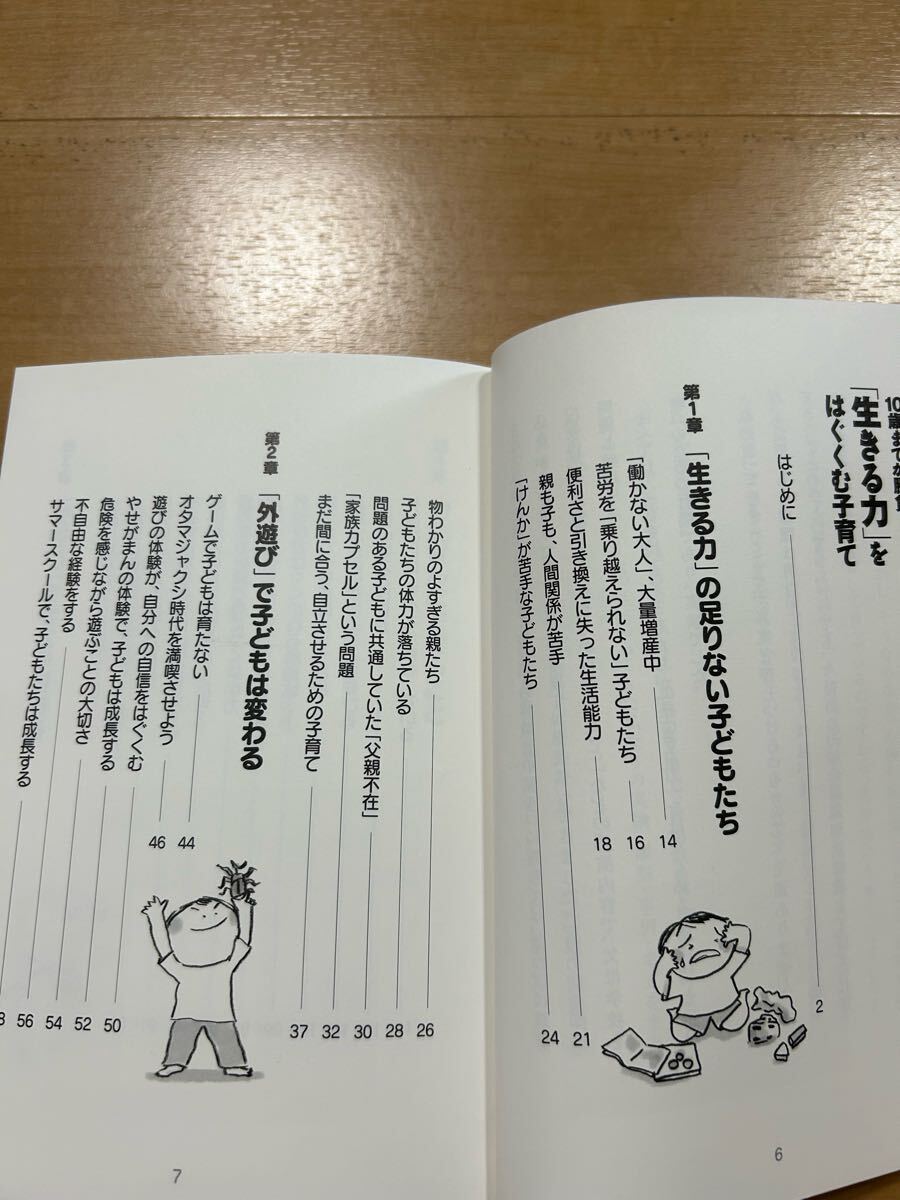 10歳までが勝負
「生きる力」を
はぐくむ子育て
はじめに 2
第1章 「生きる力」の足りない子どもたち
「働かない大人」、大量増産中 14
苦労を「乗り越えられない」子どもたち 16
便利さと引き換えに失った生活能力 18
親も子も、人間関係が苦手 21
「けんか」が苦手な子どもたち 24
6
物わかりのよすぎる親たち 26
子どもたちの体力が落ちている 28
問題のある子どもに共通していた「父親不在」 30
「家族カプセル」という問題 32
まだ間に合う、自立させるための子育て 37
第2章 「外遊び」で子どもは変わる
ゲームで子どもは育たない 44
オタマジャクシ時代を満喫させよう 46
遊びの体験が、自分への自信をはぐくむ 50
やせがまんの体験で、子どもは成長する 52
危険を感じながら遊ぶことの大切さ 54
不自由な経験をする 56
サマースクールで、子どもたちは成長する
7